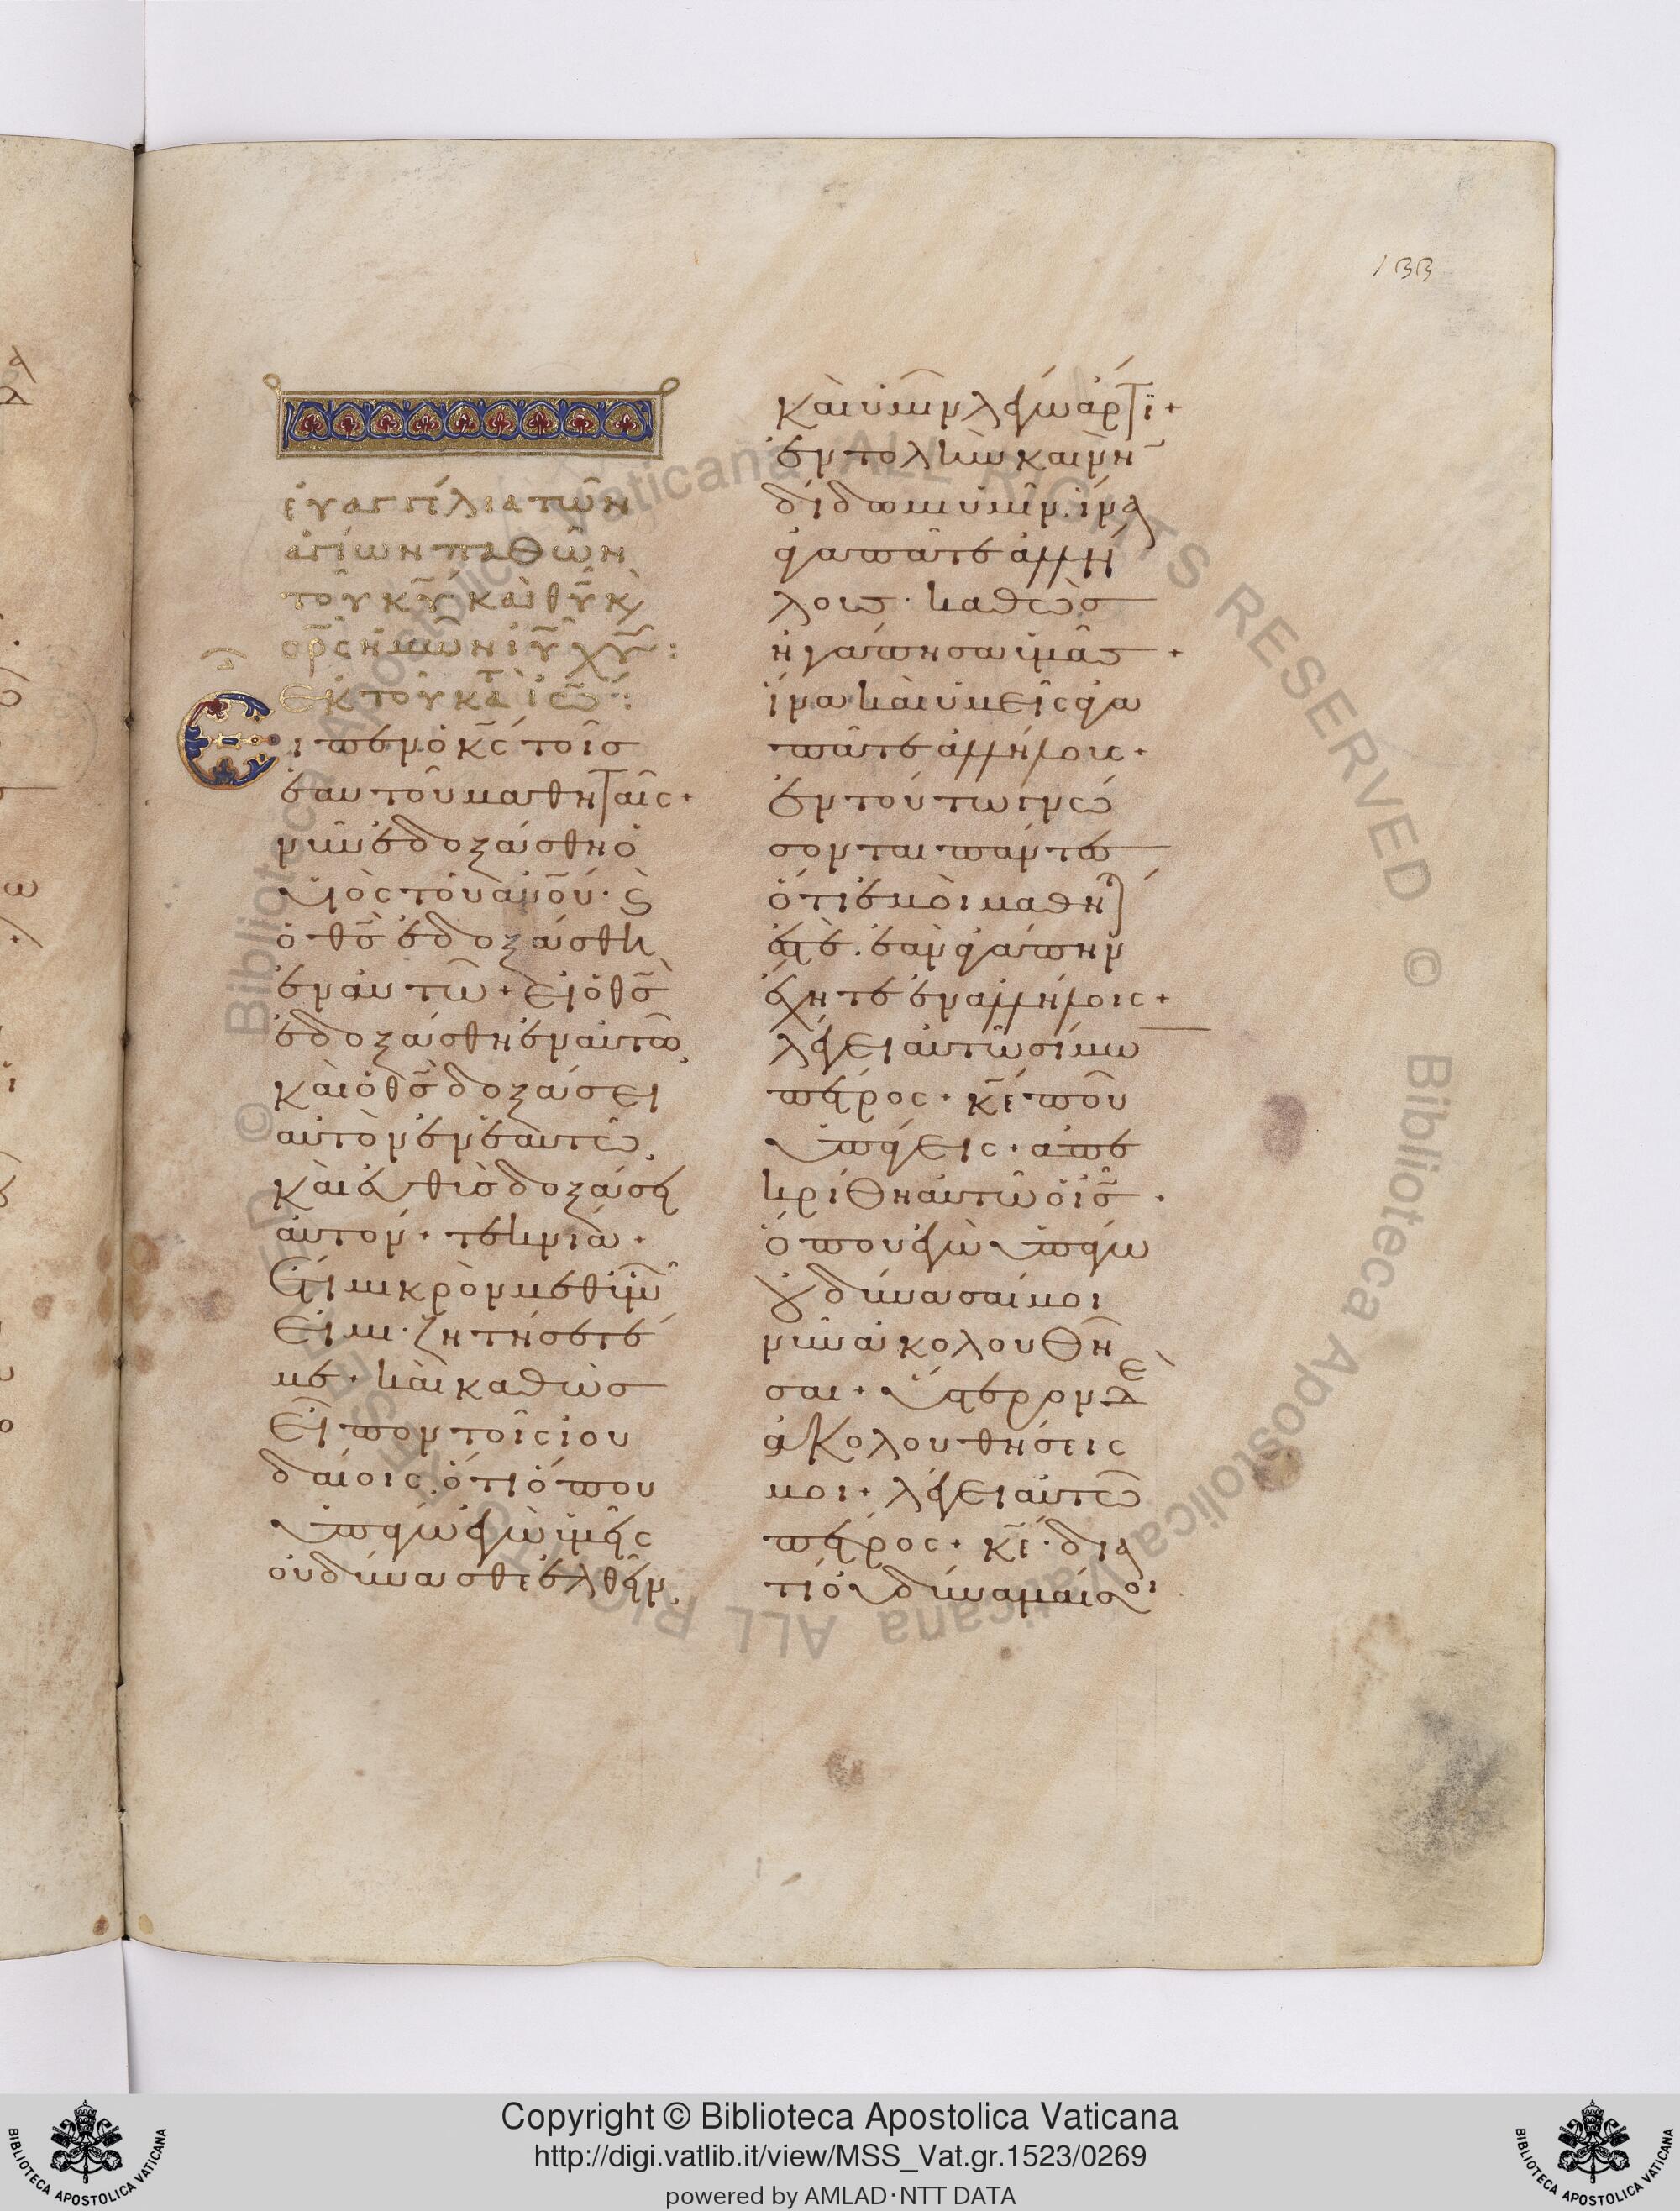 133
εὐαγγέλια τῶν
ἁγίων παθῶν
τοῦ κ̅υ̅ καὶ θ̅υ̅ κ̀
σ̅ρ̅ς ἡμῶν ἰ̅υ̅ χ̅υ̅:
Ἐκ τοῦ κατὰ ἰω̅:
Εἶπεν ὁ κ̅ς̅ τοῖς
ἑαυτοῦ μαθηταῖς+
νῦν ἐδοξάσθη ὁ
υἱὸς τοῦ ἀν̅ο̅υ̅· ϗ
ὁ θ̅ς̅ ἐδοξάσθη
ἐν αὐτῶ+ εἰ ὁ θ̅ς̅
ἐδοξάσθη ἐν αὐτῶ,
καὶ ὁ θ̅ς̅ δοξάσει
αὐτὸν ἐν ἑαυτῶ,
καὶ εὐθὺς δοξάσει
αὐτόν+ τεκνία+
ἔτι μικρὸν μεθ' ὑμῶν
εἰμι· ζητήσετέ
με+ καὶ καθὼς
εἶπον τοῖς ἰου
δαίοις· ὅτι ὅπου
ὑπάγω ἐγὼ ὑμεῖς
οὐ δύνασθε ἐλθεῖν,
καὶ ὑμῖν λέγω ἄρτι+
ἐντολὴν καινὴν
δίδωμι ὑμῖν· ἵνα
ἀγαπᾶτε ἀλλή
λους· καθὼς
ἠγάπησα ὑμᾶς+
ἵνα καὶ ὑμεῖς ἀγα
πᾶτε ἀλλήλους+
ἐν τούτω γνώ
σονται πάντες
ὅτι ἐμοὶ μαθηταί
ἐστε· ἐὰν ἀγάπην
ἔχητε ἐν ἀλλήλοις+
λέγει αὐτῶ σίμων
πέτρος+ κ̅ε̅ ποῦ
ὑπάγεις+ ἀπε
κρίθη αὐτῶ ὁ ἰ̅ς̅+
ὅπου ἐγὼ ὑπάγω
οὐ δύνασαί μοι
νῦν ἀκολουθῆ
σαι+ ὕστερον δὲ
ἀκολουθήσεις
μοι+ λέγει αὐτῶ
πέτρος+ κ̅ε̅· δια
τί οὐ δύναμαί σοι
Copyright © Biblioteca Apostolica Vaticana
http://digi.vatlib.it/view/MSS_Vat.gr.1523/0269
powered by AMLAD·NTT DATA
BIBLIOTECA APOSTOLICA VATICANA
BIBLIOTECA APOSTOLICA VATICANA
© Biblioteca Apostolica Vaticana ALL RIGHTS RESERVED © Biblioteca Apostolica Vaticana ALL RIGHTS RESERVED